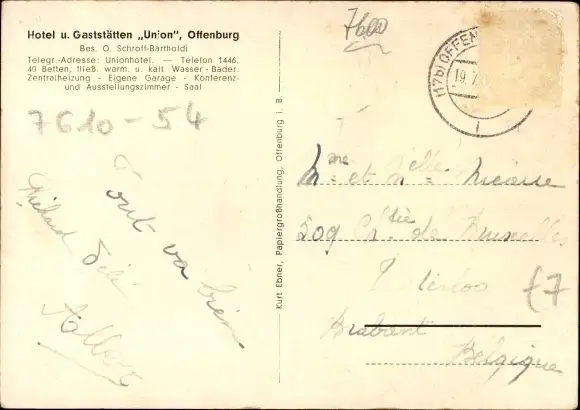 Hotel u. Gaststätten „Union", Offenburg
Bes. O. Schroff-Bartholdi
Telegr.-Adresse: Unionhotel. — Telefon 1446.
40 Betten, fließ. warm. u. kalt. Wasser - Bäder.
Zentralheizung - Eigene Garage - Konferenz-
und Ausstellungszimmer - Saal
7610-54
Tout va bien
Albert
Kurt Ebner, Papiergroßhandlung, Offenburg i. B.
7600
(17b) OFFEN
19.7
Mme et Melle
509 Chée de Bruxelles
Brabant
Belgique
£7